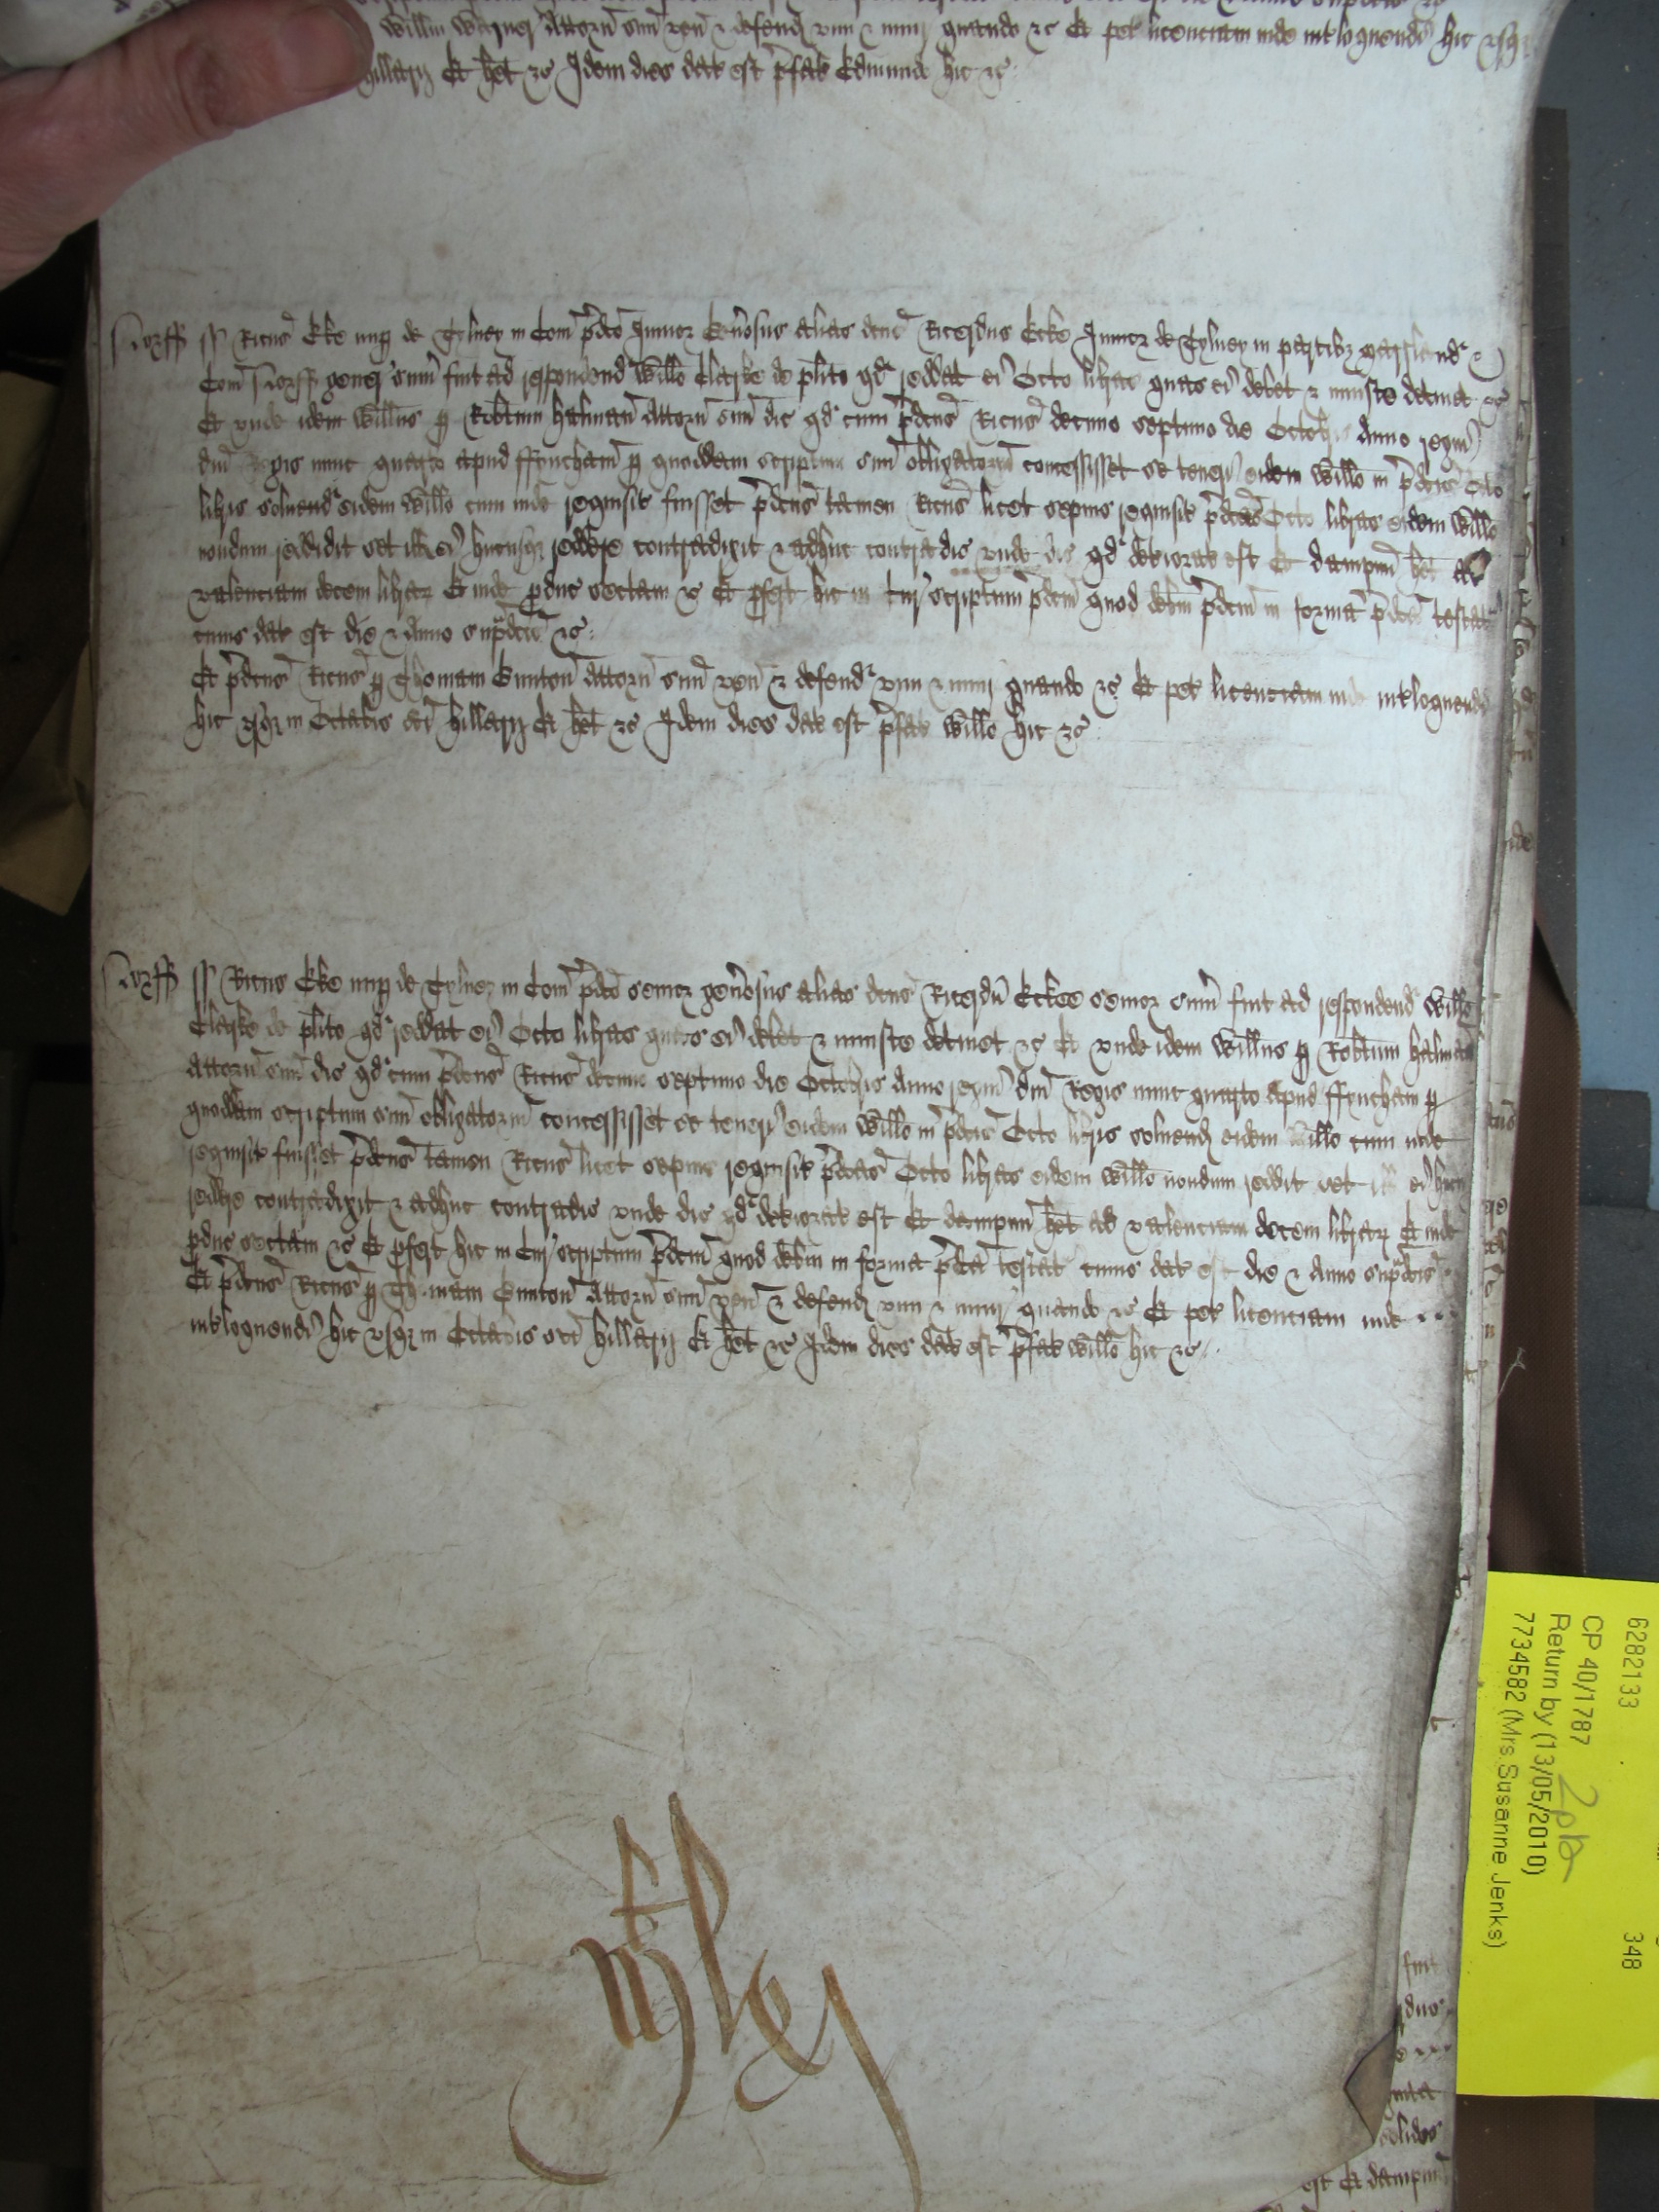 Willm Attorn suu ven & defend vim & iniur quando &c Et pet licenciam inde intloquendi hic usq
Hillarij Et het &c Idem dies dat est prfat Edmundo hic &c
Norff ss Ricus Eke nup de Tylney in Com pdco Junior Genosus alias dcus Ricardus Ecke Junior de Tylney in partibz
Com Norff gener sum fuit ad respondend Willo Clarke de plito qd reddat ei Octo libras quas ei debet & iniuste detinet &c
Et unde idem Willus p Robtum Halman Attorn suu dic qd cum pdcus Ricus decimo septimo die Octobris Anno regni
dni Regis nunc quarto apud ffyncham p quoddam scriptum suu obligatorm concessisset se teneri eidem Willo in pdcis Octo
libris solvend eidem Willo cum inde requisit fuisset pdcus tamen Ricus licet sepius requisit pdcas Octo libras eidem Willo
nondum reddidit set ill ei hucusqz reddre contradixit & adhuc contradic unde dic qd deteriorat est Et dampnu het ad
valenciam decem librar Et inde pduc sectam &c Et pfert hic in Cur scriptum pdcm quod debm pdcm in forma pdca testat
cuius dat est die & Anno supdcis &c
Et pdcus Ricus p Thomam Gunton Attorn suu ven & defend vim & iniur quando &c Et pet licenciam inde intloquendi
hic usqz in Octabis sci Hillarij Et het &c Idem dies dat est pfat Willo hic &c
Norff ss Ricus Eke nup de Tylney in Com pdco senior genosus alias dcus Ricardus Eckee senior sum fuit ad respondend Willo
Clarke de plito qd reddat ei Octo libras quas ei debet & iniuste detinet &c Et unde idem Willus p Robtum Halman
Attorn suu dic qd cum pdcus Ricus decimo septimo die Octobris Anno regni dni Regis nunc quarto apud ffyncham p
quoddam scriptum suu obligatorm concessisset se teneri eidem Willo in pdcis Octo libris solvend eidem Willo cum inde
requisit fuisset pdcus tamen Ricus licet sepius requisit pdcas Octo libras eidem Willo nondum reddit set ill ei hucu
reddre contradixit & adhuc contradic unde dic qd deteriorat est Et dampnu het ad valenciam decem librar Et inde
pduc sectam &c Et pfert hic in Cur scriptum pdcm quod debm in forma pdca testat cuius dat est die & Anno supdcis
Et pdcus Ricus p Thomam Gunton Attorn suu ven & defend vim & iniur quando &c Et pet licenciam inde
intloquendi hic usqz in Octabis sci Hillarij Et het &c Idem dies dat est pfat Willo hic &c
6282133 348
CP 40/1787
Return by (13/05/2010)
7734582 (Mrs Susanne Jenks)
est Et dampnu